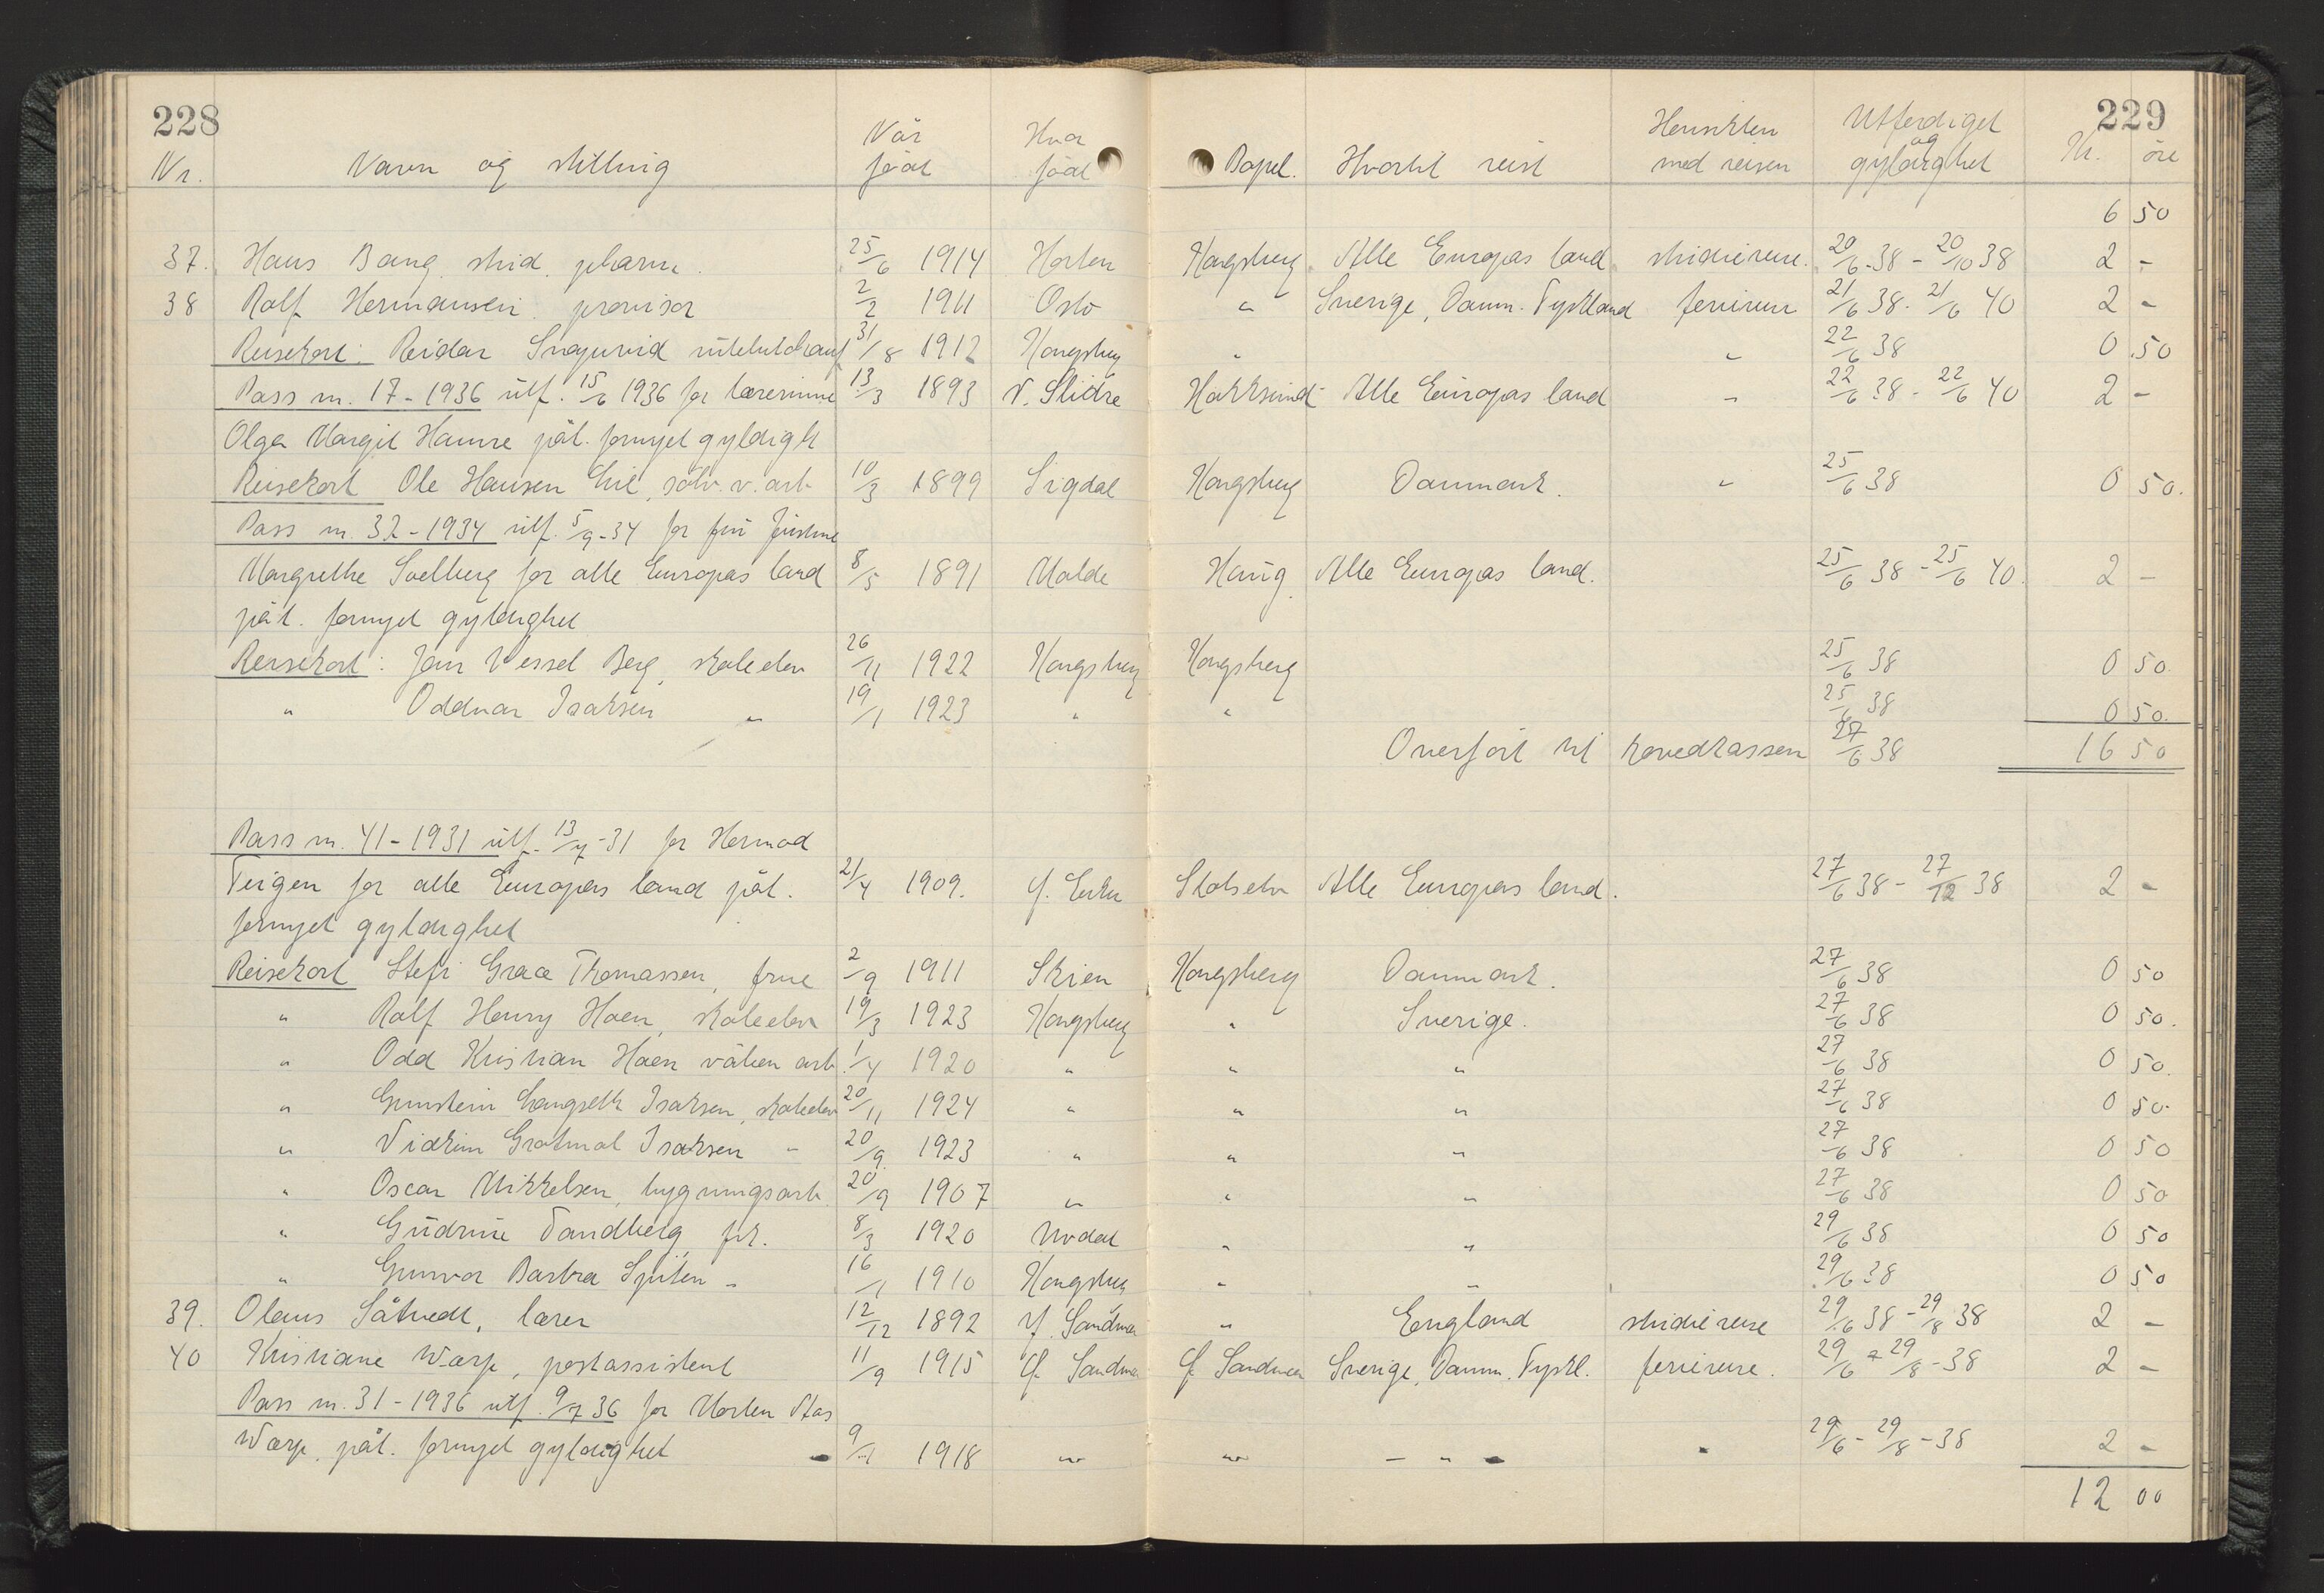 228
229
Nr. Navn og stilling Når født Hvor født Bopel. Hvortil reist Hensikten med reisen Utferdiget og gyldighet Kr. øre
6 50
37. Hans Bang, stud. pharm. 25/6 1914 Horten Kongsberg Alle Europas land studiereise. 20/6-38 - 20/10 38 2 -
38 Rolf Hermansen provisor 2/2 1911 Oslo " Sverige, Danm. Tyskland feriereise 21/6 38 - 21/6 40 2 -
Reisekort: Reidar 31/8 1912 Kongsberg " " 22/6 38 0 50
Pass nr. 17 - 1936 utf. 15/6 1936 for lærerinne 13/3 1893 V. Slidre Hokksund Alle Europas land " 22/6 38 - 22/6 40 2 -
Olga Margit Hamre påt. fornyet gyldigh
Reisekort Ole Hansen Lie, sølv. v. arb 10/3 1899 Sigdal Kongsberg Danmark. " 25/6 38 0 50.
Pass nr. 32 - 1934 utf. 5/9-34 for
Margrethe Solberg for alle Europas land 8/5 1891 Molde Haug. Alle Europas land. 25/6 38 - 25/6 40. 2 -
påt. fornyet gyldighet
Reisekort: Jan Wessel Berg, skoleelev 26/11 1922 Kongsberg Kongsberg 25/6 38 0 50.
" Oddvar Isaksen " 19/1 1923 " " 25/6 38 0 50.
Overført til hovedkassen 27/6 38 16 50
Pass nr. 41 - 1931 utf. 13/7-31 for Hermod
Teigen for alle Europas land påt. 21/4 1909. Ø. Eiker Skotselv Alle Europas land. 27/6 38 - 27/12 38 2 -
fornyet gyldighet
Reisekort Stefi Grace Thomassen, frue 2/9 1911 Skien Kongsberg Danmark. 27/6 38 0 50
" Rolf Henry Hoen, skoleelev 19/3 1923 Kongsberg " Sverige. 27/6 38 0 50.
" Odd Kristian Hoen våben arb. 1/4 1920 " " " 27/6 38 0 50.
" Gunstein Langseth Isaksen, skoleelev 20/11 1924 " " " 27/6 38 0 50.
" Isaksen " 20/9 1923 " " " 27/6 38 0 50
" Oscar Mikkelsen, bygningsarb. 20/9 1907 " " " 27/6 38 0 50
" Gudrun Sandberg, frk. 8/3 1920 Uvdal " " 29/6 38 0 50
" Gunvor Barbra Spiten " 16/1 1910 Kongsberg " " 29/6 38 0 50
39. Olaus Såtvedt, lærer 12/12 1892 Y. Sandsvær " England studiereise 29/6 38 - 29/8 38 2 -
40 Kristiane Warp, postassistent 11/9 1915 Ø. Sandsvær Ø. Sandsvær Sverige, Danm. Tyskl. feriereise. 29/6 - 29/8 - 38 2 -
Pass nr. 31 - 1936 utf. 9/7 36 for Morten Aas
Warp, påt. fornyet gyldighet 9/1 1918 " " - " - " 29/6 - 29/8 - 38 2 -
12 00